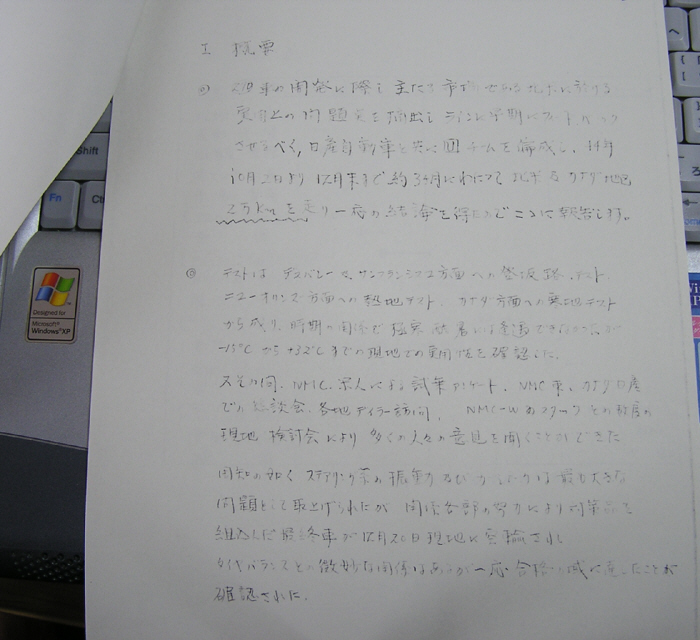 I 概要
の開発に際し主たる市場である北米に於ける
実用上の問題点を摘出し 早期にフィードバック
させるべく、日産自動車と共に チームを編成し、44年
10月 より 12月末まで約3ヶ月にわたって北米及カナダ地区
2万kmを走り一応の結論を得たのでここに報告します。
◎ テストは デスバレー サンフランシスコ方面への登坂路テスト、
ニューオリンズ方面への熱地テスト、カナダ方面への寒地テスト
から成り、時期の関係で極寒 酷暑には遭遇できなかったが
-15℃から+32℃までの現地での実用性を確認した。
又その間、NMC、求人による試乗アンケート、NMC カナダ日産
での 談会、各地ディラー訪問、NMC-W のスタッフ その都度の
現地検討会により 多くの人々の意見を聞くことができた
周知の如く ステアリング系の振動 は最も大きな
問題として取上げられたが 関係各部の努力により対策品を
組込んだ最終車が12月20日現地に空輸され
タイヤバランスとの微妙な関係はあるが一応合格の域に達したことが
確認された。
Shift
Fn
Ct
Designed for
Microsoft
Windows XP